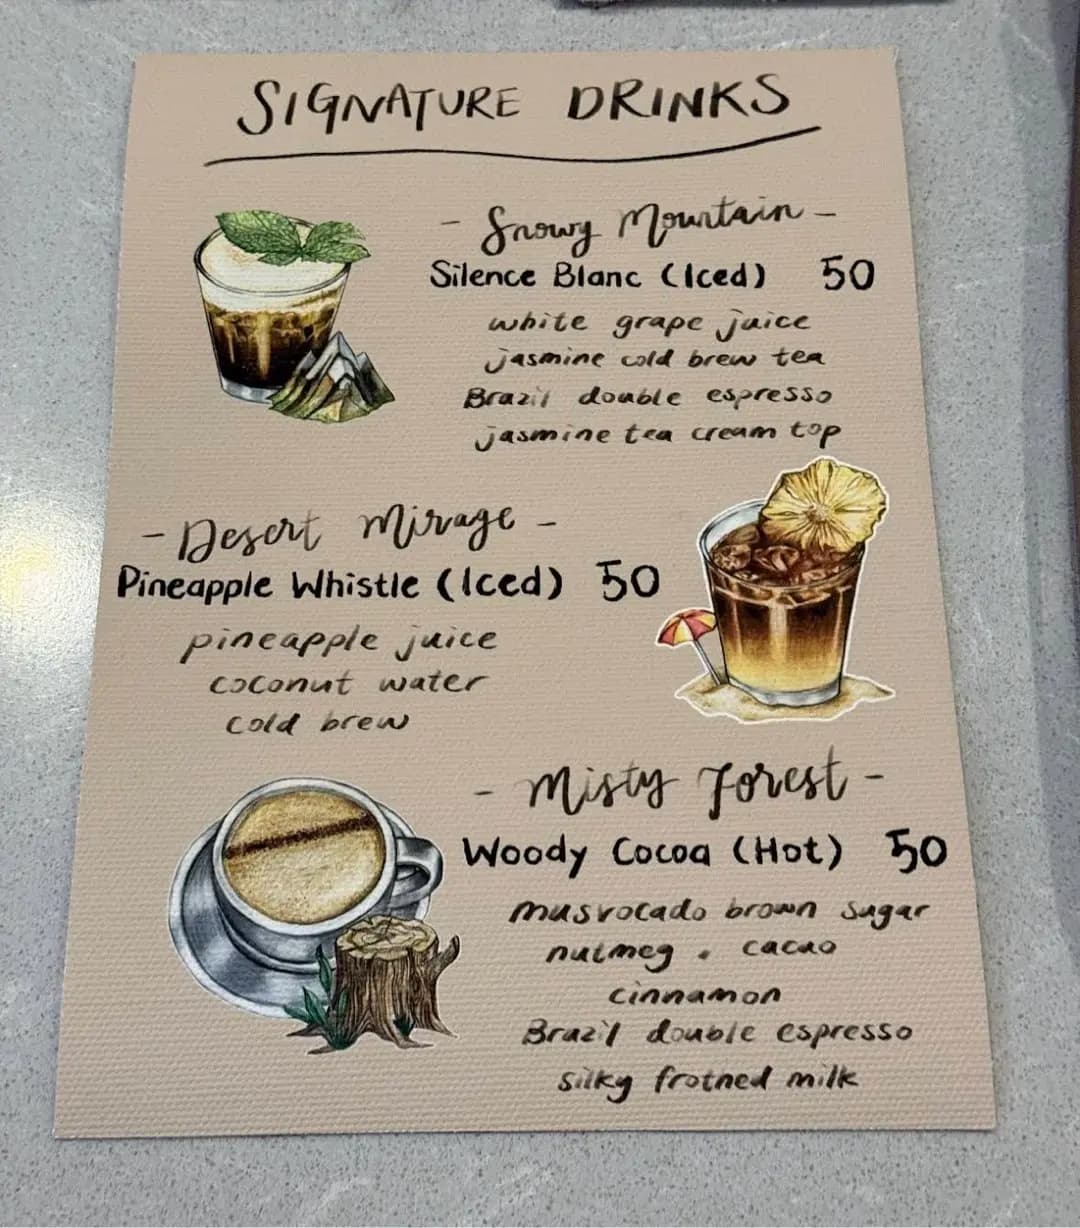 SIGNATURE DRINKS
- Snowy Mountain -
Silence Blanc (Iced) 50
white grape juice
jasmine cold brew tea
Brazil double espresso
jasmine tea cream top
- Desert Mirage -
Pineapple Whistle (Iced) 50
pineapple juice
coconut water
cold brew
- Misty Forest -
Woody Cocoa (Hot) 50
musvocado brown sugar
nutmeg . cacao
cinnamon
Brazil double espresso
silky frothed milk